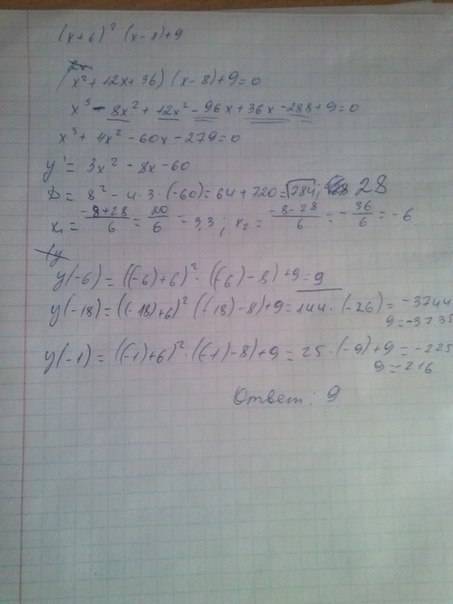 (x+6)² (x-8)+9
x²+12x+36) (x-8)+9=0
x³-8x²+12x²-96x+36x-288+9=0
x³+4x²-60x-279=0
y'=3x²-8x-60
D=8²-4·3·(-60)=64+720=√784; 28
x₁=(-8+28)/6=20/6=3,3; x₂=(-8-28)/6=-36/6=-6
y(-6)=((-6)+6)²·((-6)-8)+9=9
y(-18)=((-18)+6)²·((-18)-8)+9=144·(-26)=-3744
9=-3735
y(-1)=((-1)+6)²·((-1)-8)+9=25·(-9)+9=-225
9=216
Ответ: 9